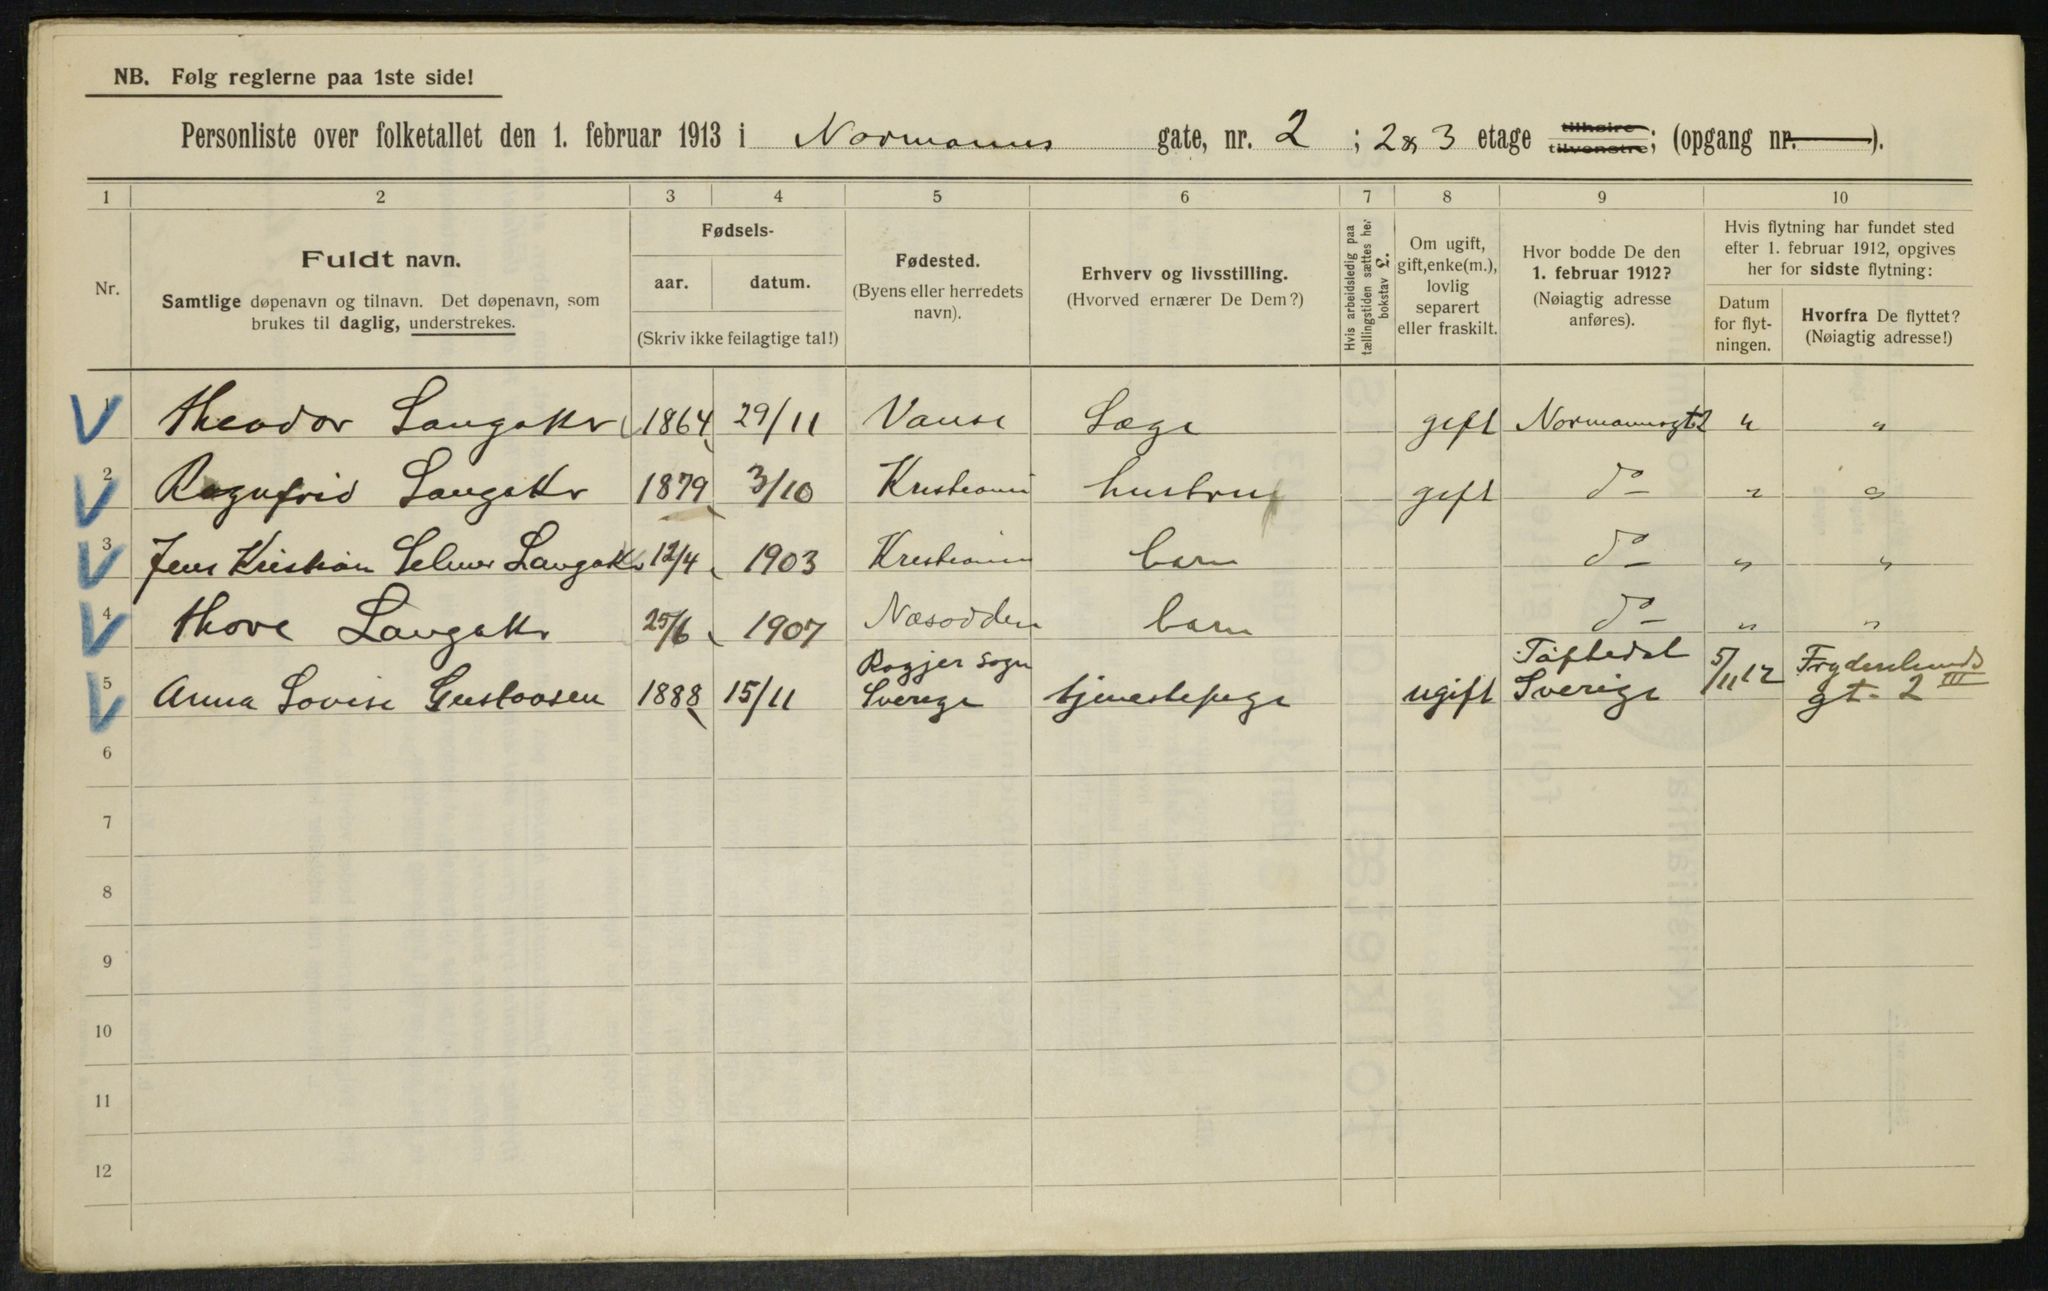 NB. Følg reglerne paa 1ste side!
Personliste over folketallet den 1. februar 1913 i Normanns gate, nr. 2 ; 2 & 3 etage tilhøire tilvenstre; (opgang nr. ).
1 2 3 4 5 6 7 8 9 10
Nr.
Fuldt navn.
Samtlige døpenavn og tilnavn. Det døpenavn, som
brukes til daglig, understrekes.
Fødsels-
aar. datum.
(Skriv ikke feilagtige tal!)
Fødested.
(Byens eller herredets
navn).
Erhverv og livsstilling.
(Hvorved ernærer De Dem?)
Hvis arbeidsledig paa
tællingstiden sættes her
bokstav L.
Om ugift,
gift, enke(m.),
lovlig
separert
eller fraskilt.
Hvor bodde De den
1. februar 1912?
(Nøiagtig adresse
anføres).
Hvis flytning har fundet sted
efter 1. februar 1912, opgives
her for sidste flytning:
Datum
for flyt-
ningen.
Hvorfra De flyttet?
(Nøiagtig adresse!)
1 Theodor Langaker 1864 29/11 Vanse Læge gift Normannsgt 2 " "
2 Ragnfrid Langaker 1879 3/10 Kristiania hustru gift do " "
3 Jens Kristian Selmer Langaker 12/4 1903 Kristiania barn do " "
4 Thove Langaker 25/6 1907 Næsodden barn do " "
5 Anna Lovise Gustavsen 1888 15/11 sogn Sverige tjenestepige ugift Sverige 5/11 12 Frydenlunds gt. 2 III
6
7
8
9
10
11
12